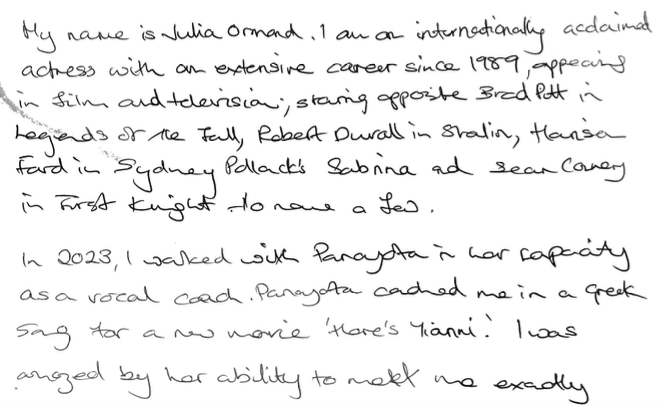 My name is Julia Ormond. I am an internationally acclaimed
actress with an extensive career since 1989, appearing
in film and television, staring opposite Brad Pitt in
Legends of the Fall, Robert Duvall in Stalin, Harrison
Ford in Sydney Pollack's Sabrina and Sean Connery
in First Knight to name a few.
In 2023, I worked with Panayota in her capacity
as a vocal coach. Panayota coached me in a Greek
song for a new movie 'Here's Yianni!' I was
amazed by her ability to meet me exactly